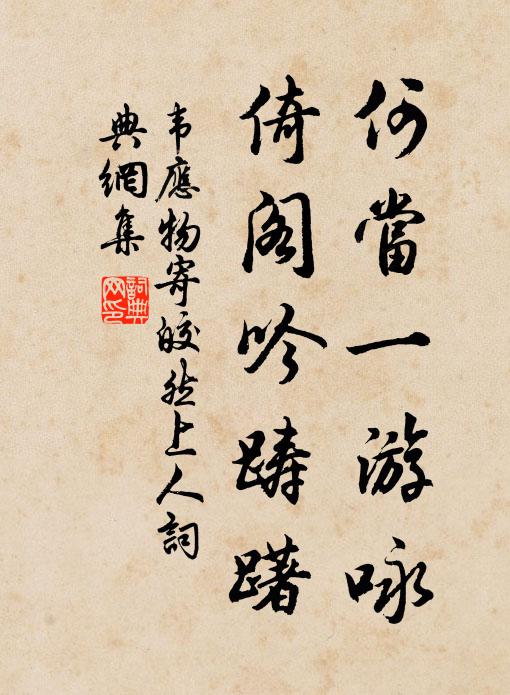 何當一游咏
倚阁吟躊躇
韦應物寄皎然上人詞
典網集
詞典网印